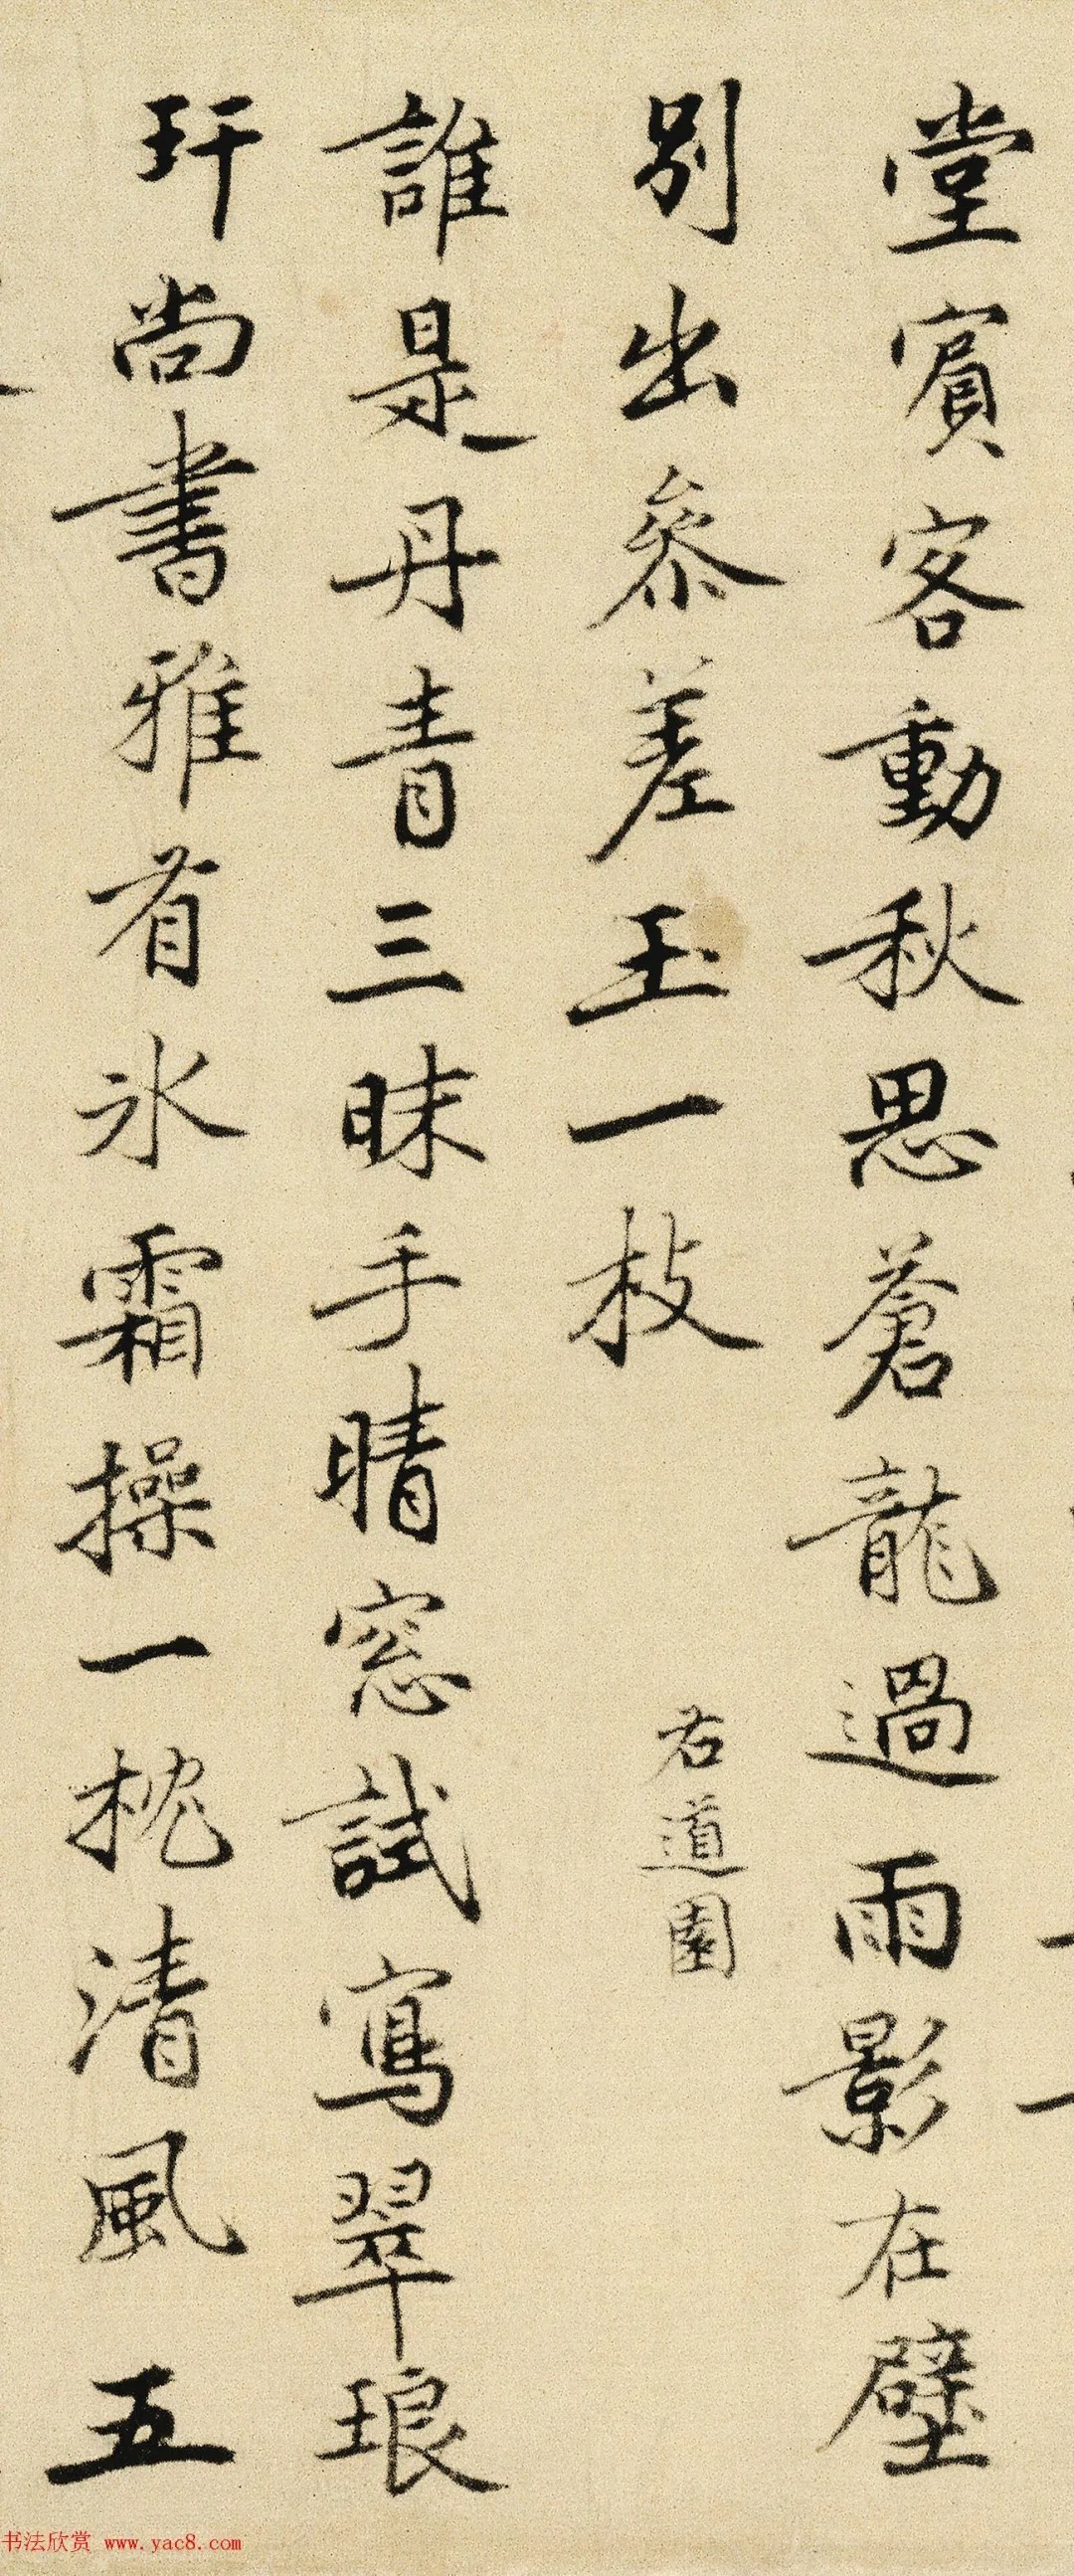 堂賓客動秋思蒼龍過雨影在壁
別出參差玉一枝
右道園
誰是丹青三昧手晴窓試寫翠琅
玕尚書雅有冰霜操一枕清風五
书法欣赏 www.yac8.com